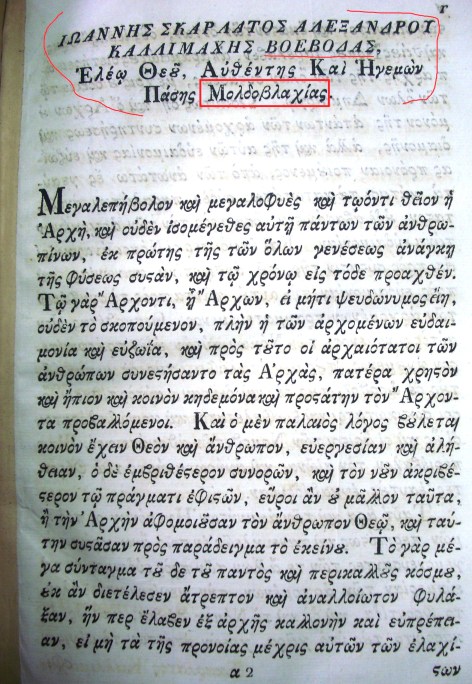 γ
ΙΩΑΝΝΗΣ ΣΚΑΡΛΑΤΟΣ ΑΛΕΞΑΝΔΡΟΥ
ΚΑΛΛΙΜΑΧΗΣ ΒΟΕΒΟΔΑΣ,
Ἐλέῳ Θεοῦ, Αὐθέντης Καὶ Ἡγεμὼν
Πάσης Μολδοβλαχίας.
Μεγαλεπήβολον καὶ μεγαλοφυὲς καὶ τῳόντι θεῖον ἡ
Ἀρχὴ, καὶ οὐδὲν ἰσομέγεθες αὐτῇ πάντων τῶν ἀνθρω-
πίνων, ἐκ πρώτης τῆς τῶν ὅλων γενέσεως ἀνάγκῃ
τῆς φύσεως συστὰν, καὶ τῷ χρόνῳ εἰς τόδε προαχθέν.
Τῷ γὰρ Ἄρχοντι, ᾗ Ἄρχων, εἰ μήτι ψευδώνυμος εἴη,
οὐδὲν τὸ σκοπούμενον, πλὴν ἡ τῶν ἀρχομένων εὐδαι-
μονία καὶ εὐζωΐα, καὶ πρὸς τοῦτο οἱ ἀρχαιότατοι τῶν
ἀνθρώπων συνεστήσαντο τὰς Ἀρχὰς, πατέρα χρηστὸν
καὶ ἤπιον καὶ κοινὸν κηδεμόνα καὶ προστάτην τὸν Ἄρχον-
τα προβαλλόμενοι. Καὶ ὁ μὲν παλαιὸς λόγος βούλεται
κοινὸν ἔχειν Θεὸν καὶ ἄνθρωπον, εὐεργεσίαν καὶ ἀλή-
θειαν, ὁ δὲ ἐμβριθέστερον συνορῶν, καὶ τὸν νοῦν ἀκριβέ-
στερον τῷ πράγματι ἐφιστῶν, εὕροι ἂν οὐ μᾶλλον ταῦτα,
ἢ τὴν Ἀρχὴν ἀφομοιοῦσαν τὸν ἄνθρωπον Θεῷ, καὶ ταύ-
την συστᾶσαν πρὸς παράδειγμα τὸ ἐκείνου. Τὸ γὰρ μέ-
γα σύνταγμα τοῦδε τοῦ παντὸς καὶ περικαλλοῦς κόσμου,
οὐκ ἂν διετέλεσεν ἄτρεπτον καὶ ἀναλλοίωτον φυλά-
ξαν, ἥν περ ἔλαβεν ἐξ ἀρχῆς καλλονὴν καὶ εὐπρέπει-
αν, εἰ μὴ τὰ τῆς προνοίας μέχρις αὐτῶν τῶν ἐλαχί-
α 2 στων